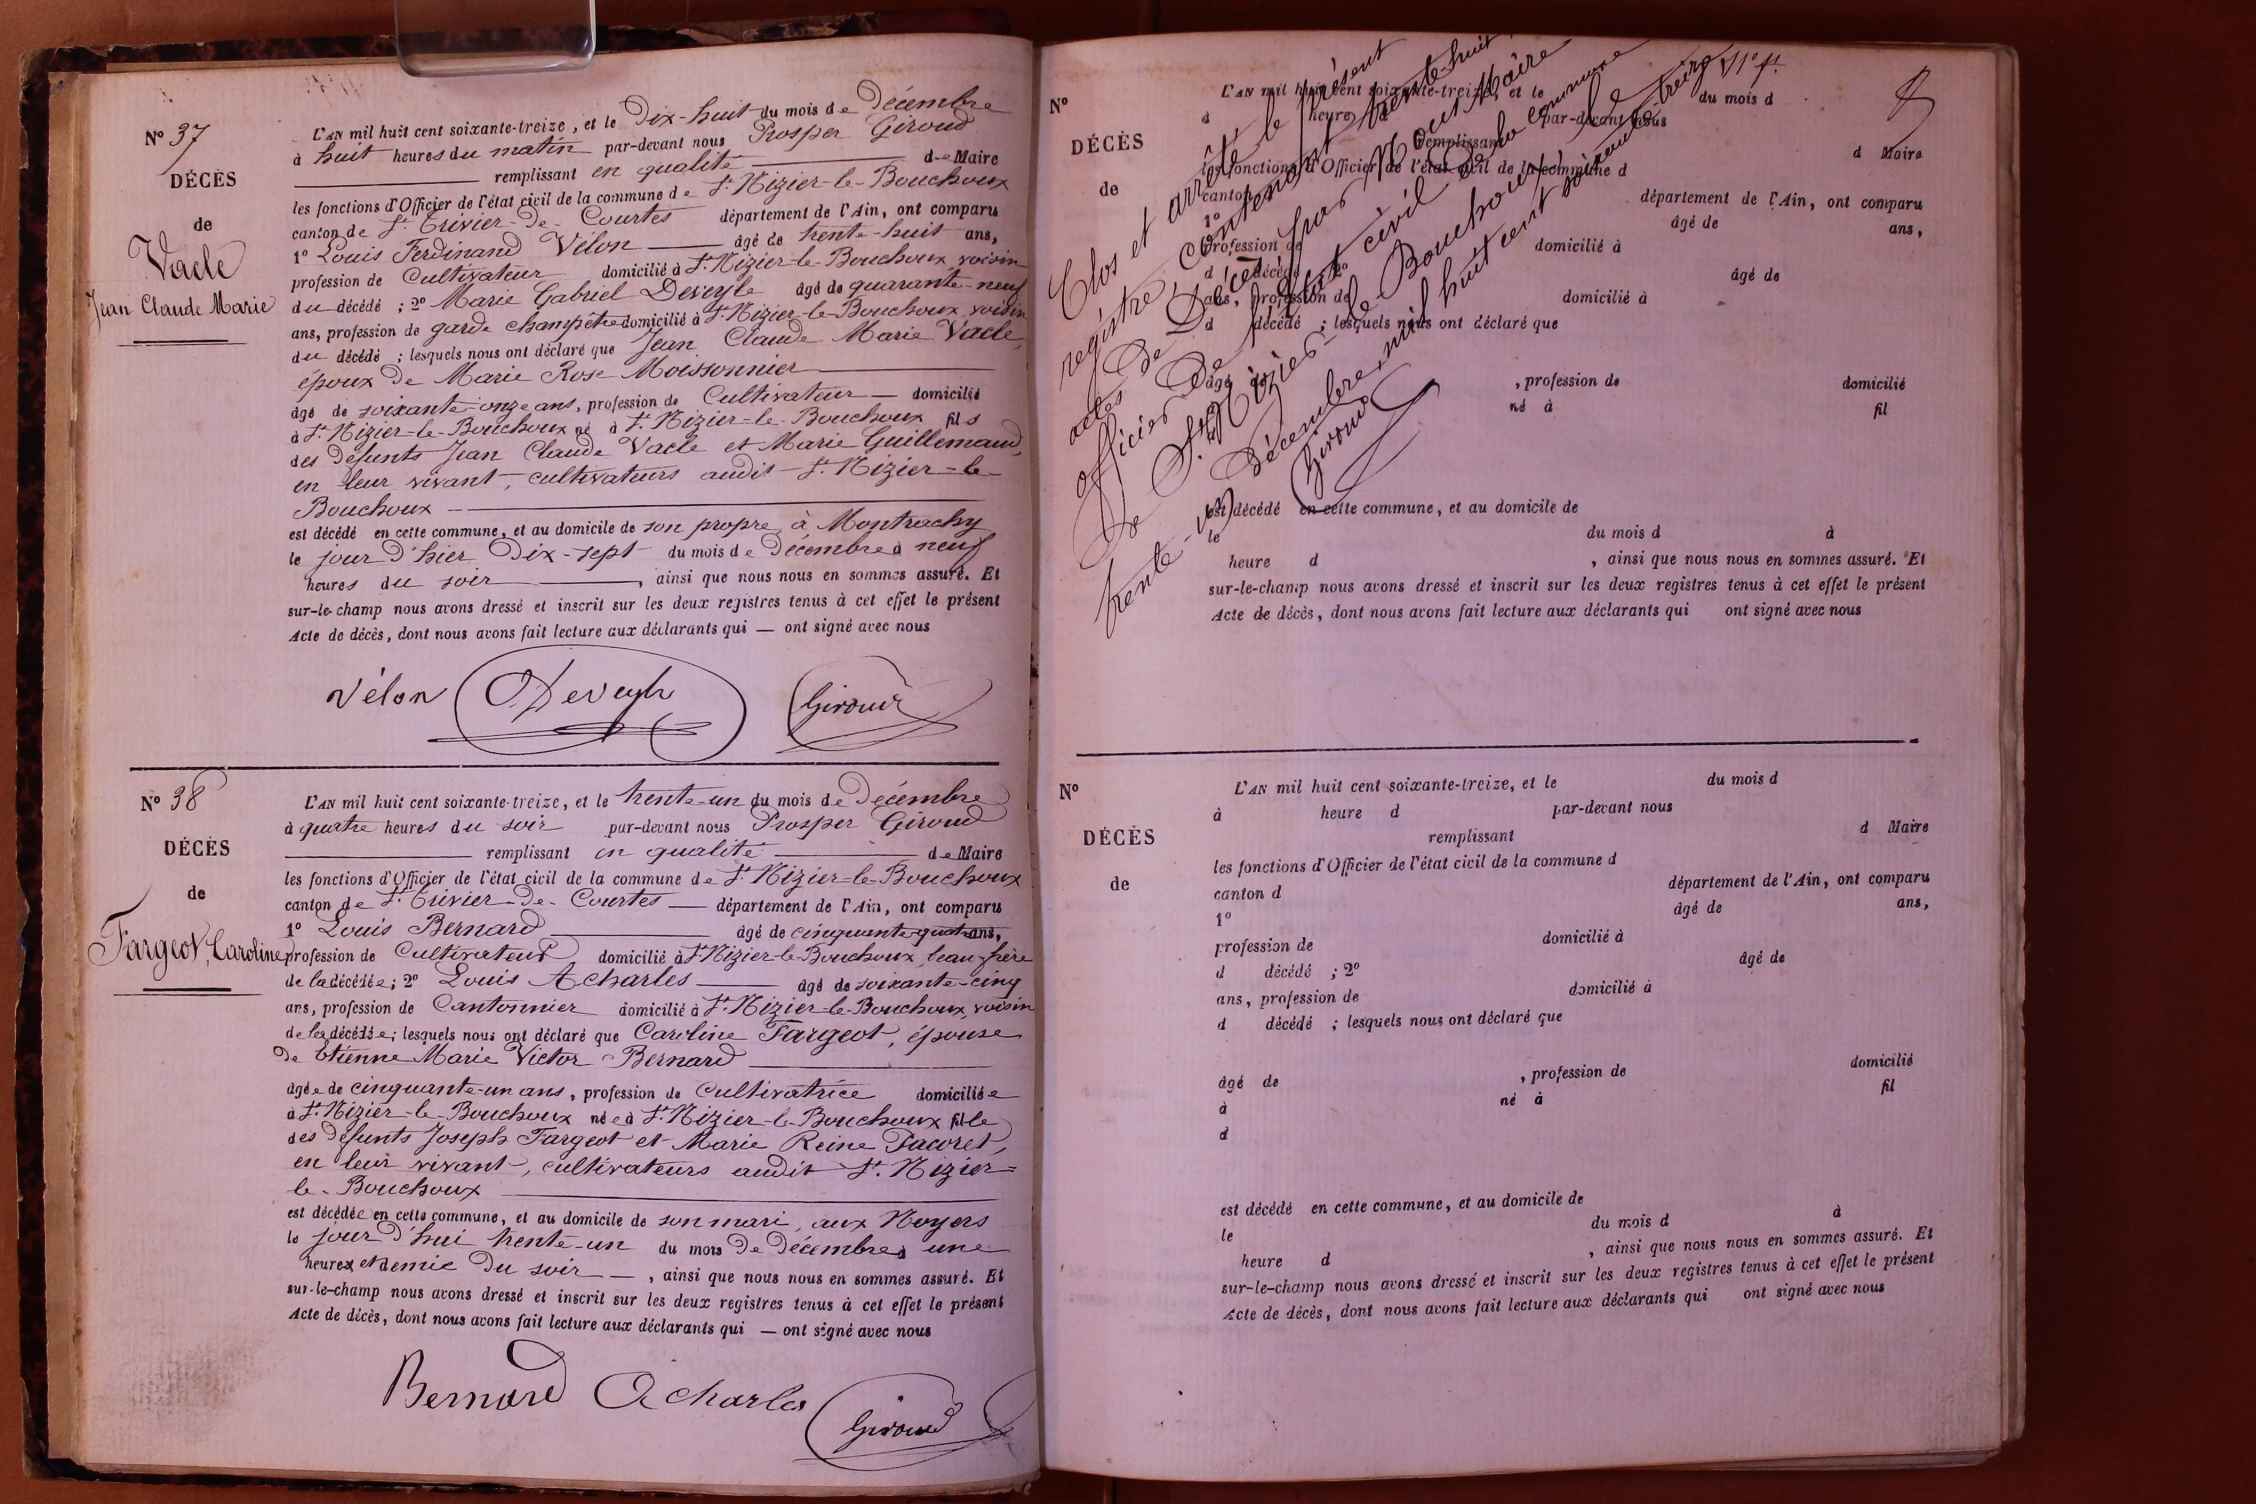 N° 37
DÉCÈS
de
Vacle
Jean Claude Marie
L'AN mil huit cent soixante-treize, et le Dix-huit du mois de Décembre
à huit heures du matin par-devant nous Prosper Giroud
remplissant en qualité de Maire
les fonctions d'Officier de l'état civil de la commune de St Nizier-le-Bouchoux
canton de St Trivier-de-Courtes département de l'Ain, ont comparu
1° Louis Ferdinand Vélon âgé de trente-huit ans,
profession de Cultivateur domicilié à St Nizier-le-Bouchoux, voisin
du décédé ; 2° Marie Gabriel Deveyle âgé de quarante-neuf
ans, profession de garde champêtre domicilié à St Nizier-le-Bouchoux, voisin
du décédé ; lesquels nous ont déclaré que Jean Claude Marie Vacle,
époux de Marie Rose Moissonnier
âgé de soixante-onze ans, profession de Cultivateur domicilié
à St Nizier-le-Bouchoux né à St Nizier-le-Bouchoux fils
des défunts Jean Claude Vacle et Marie Guillemaud,
en leur vivant, cultivateurs audit St Nizier-le-
Bouchoux
est décédé en cette commune, et au domicile de son propre, à Montrachy
le jour d'hier Dix-sept du mois de Décembre à neuf
heures du soir, ainsi que nous nous en sommes assuré. Et
sur-le-champ nous avons dressé et inscrit sur les deux registres tenus à cet effet le présent
Acte de décès, dont nous avons fait lecture aux déclarants qui — ont signé avec nous
Vélon Deveyle Giroud
N° 38
DÉCÈS
de
Fargeot, Caroline
L'AN mil huit cent soixante-treize, et le trente-un du mois de Décembre
à quatre heures du soir par-devant nous Prosper Giroud
remplissant en qualité de Maire
les fonctions d'Officier de l'état civil de la commune de St Nizier-le-Bouchoux
canton de St Trivier-de-Courtes département de l'Ain, ont comparu
1° Louis Bernard âgé de cinquante-quatre ans,
profession de Cultivateur domicilié à St Nizier-le-Bouchoux, beau-frère
de la décédée ; 2° Louis Acharles âgé de soixante-cinq
ans, profession de Cantonnier domicilié à St Nizier-le-Bouchoux, voisin
de la décédée ; lesquels nous ont déclaré que Caroline Fargeot, épouse
de Etienne Marie Victor Bernard
âgée de cinquante-un ans, profession de Cultivatrice domiciliée
à St Nizier-le-Bouchoux née à St Nizier-le-Bouchoux fille
des défunts Joseph Fargeot et Marie Reine Pacoret,
en leur vivant, cultivateurs audit St Nizier-
le-Bouchoux
est décédée en cette commune, et au domicile de son mari, aux Noyers
le jour d'hui trente-un du mois de Décembre à une
heure et demie du soir —, ainsi que nous nous en sommes assuré. Et
sur-le-champ nous avons dressé et inscrit sur les deux registres tenus à cet effet le présent
Acte de décès, dont nous avons fait lecture aux déclarants qui — ont signé avec nous
Bernard Acharles Giroud
Clos et arrêté le présent
registre, contenant trente-huit
actes de Décès, par Nous Maire
officier de l'état civil de la commune
de St Nizier-le-Bouchoux, le
trente-un décembre mil huit cent soixante-treize
Giroud
N°
DÉCÈS
de
L'AN mil huit cent soixante-treize, et le du mois d
à heure d par-devant nous
remplissant d Maire
les fonctions d'Officier de l'état civil de la commune d
canton d département de l'Ain, ont comparu
1° âgé de ans,
profession de domicilié à
d décédé ; 2° âgé de
ans, profession de domicilié à
d décédé ; lesquels nous ont déclaré que
âgé de , profession de domicilié
né à fil
est décédé en cette commune, et au domicile de
le du mois d à
heure d , ainsi que nous nous en sommes assuré. Et
sur-le-champ nous avons dressé et inscrit sur les deux registres tenus à cet effet le présent
Acte de décès, dont nous avons fait lecture aux déclarants qui ont signé avec nous
N°
DÉCÈS
de
L'AN mil huit cent soixante-treize, et le du mois d
à heure d par-devant nous
remplissant d Maire
les fonctions d'Officier de l'état civil de la commune d
canton d département de l'Ain, ont comparu
1° âgé de ans,
profession de domicilié à
d décédé ; 2° âgé de
ans, profession de domicilié à
d décédé ; lesquels nous ont déclaré que
âgé de , profession de domicilié
à né à fil
d
est décédé en cette commune, et au domicile de
le du mois d à
heure d , ainsi que nous nous en sommes assuré. Et
sur-le-champ nous avons dressé et inscrit sur les deux registres tenus à cet effet le présent
Acte de décès, dont nous avons fait lecture aux déclarants qui ont signé avec nous